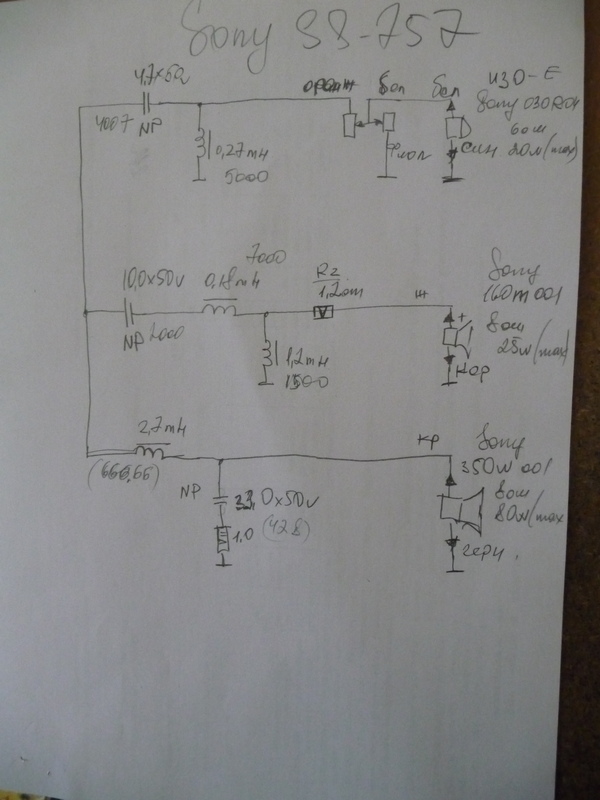 Sony SS-757
4,7x50
4007
NP
0,27mH
5000
оранж
бел
бел
фиол
ИЗО-Е
Sony 030R04
6 ом
син 20w(max)
7000
10,0x50v
0,18mH
NP 2000
1,2mH
1500
R2
1,2 om
ж
Sony
160m001
8 ом
25w(max)
+
кор
2,7mH
(666,66)
NP
33,0x50v
1.0 (428)
кр
Sony
350W001
8 ом
80w(max
черн.